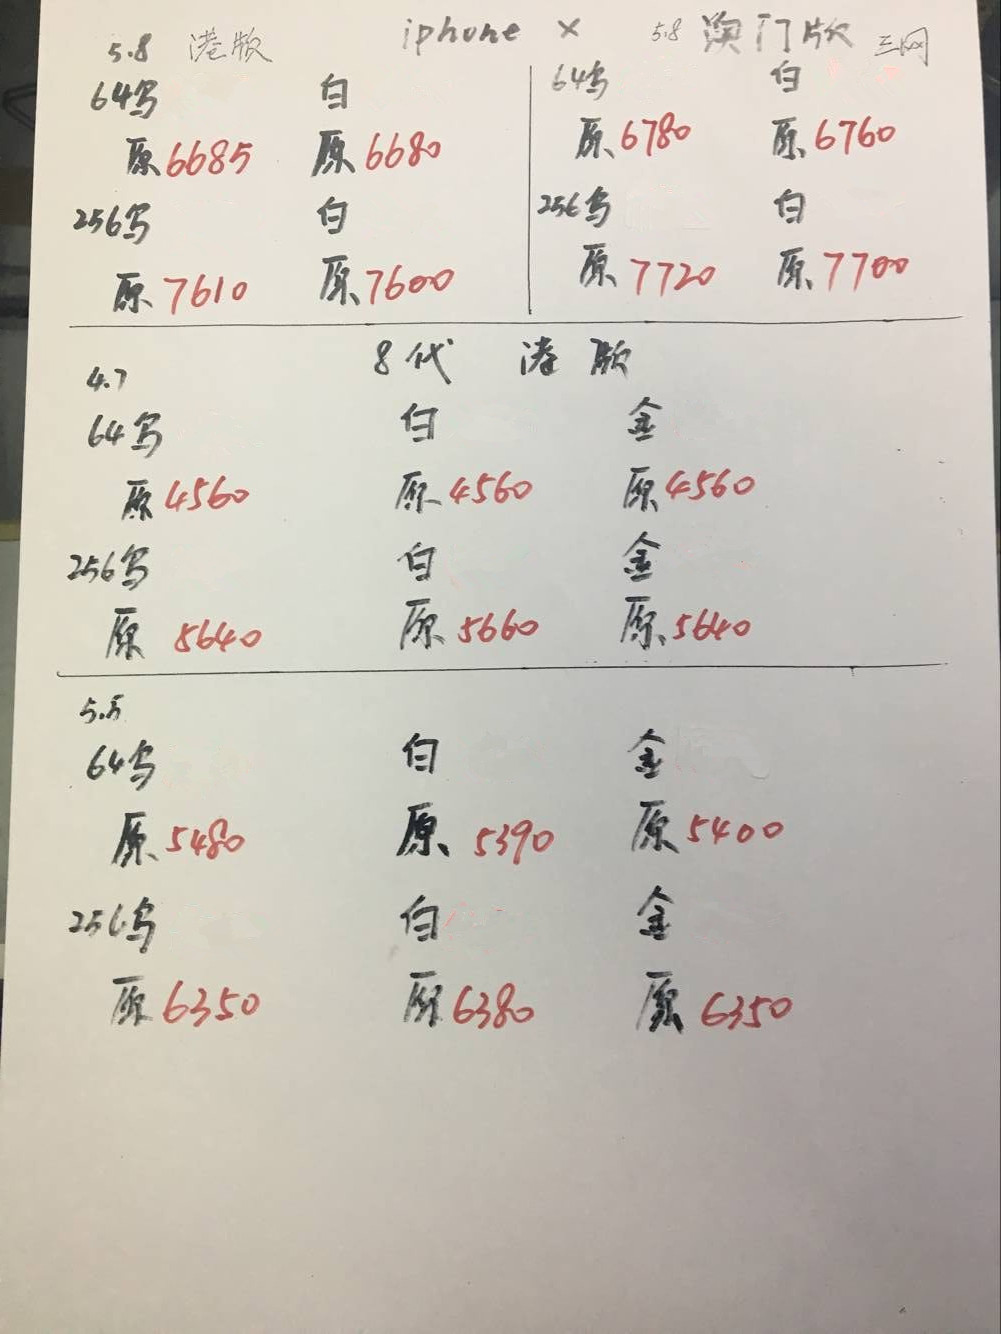 iphone x
5.8 港版
5.8 澳门版 三网
64乌 白
原 6685 原 6680
256乌 白
原 7610 原 7600
64乌 白
原 6780 原 6760
256乌 白
原 7720 原 7700
8代 港版
4.7
64乌 白 金
原 4560 原 4560 原 4560
256乌 白 金
原 5640 原 5660 原 5640
5.5
64乌 白 金
原 5480 原 5390 原 5400
256乌 白 金
原 6350 原 6380 原 6350